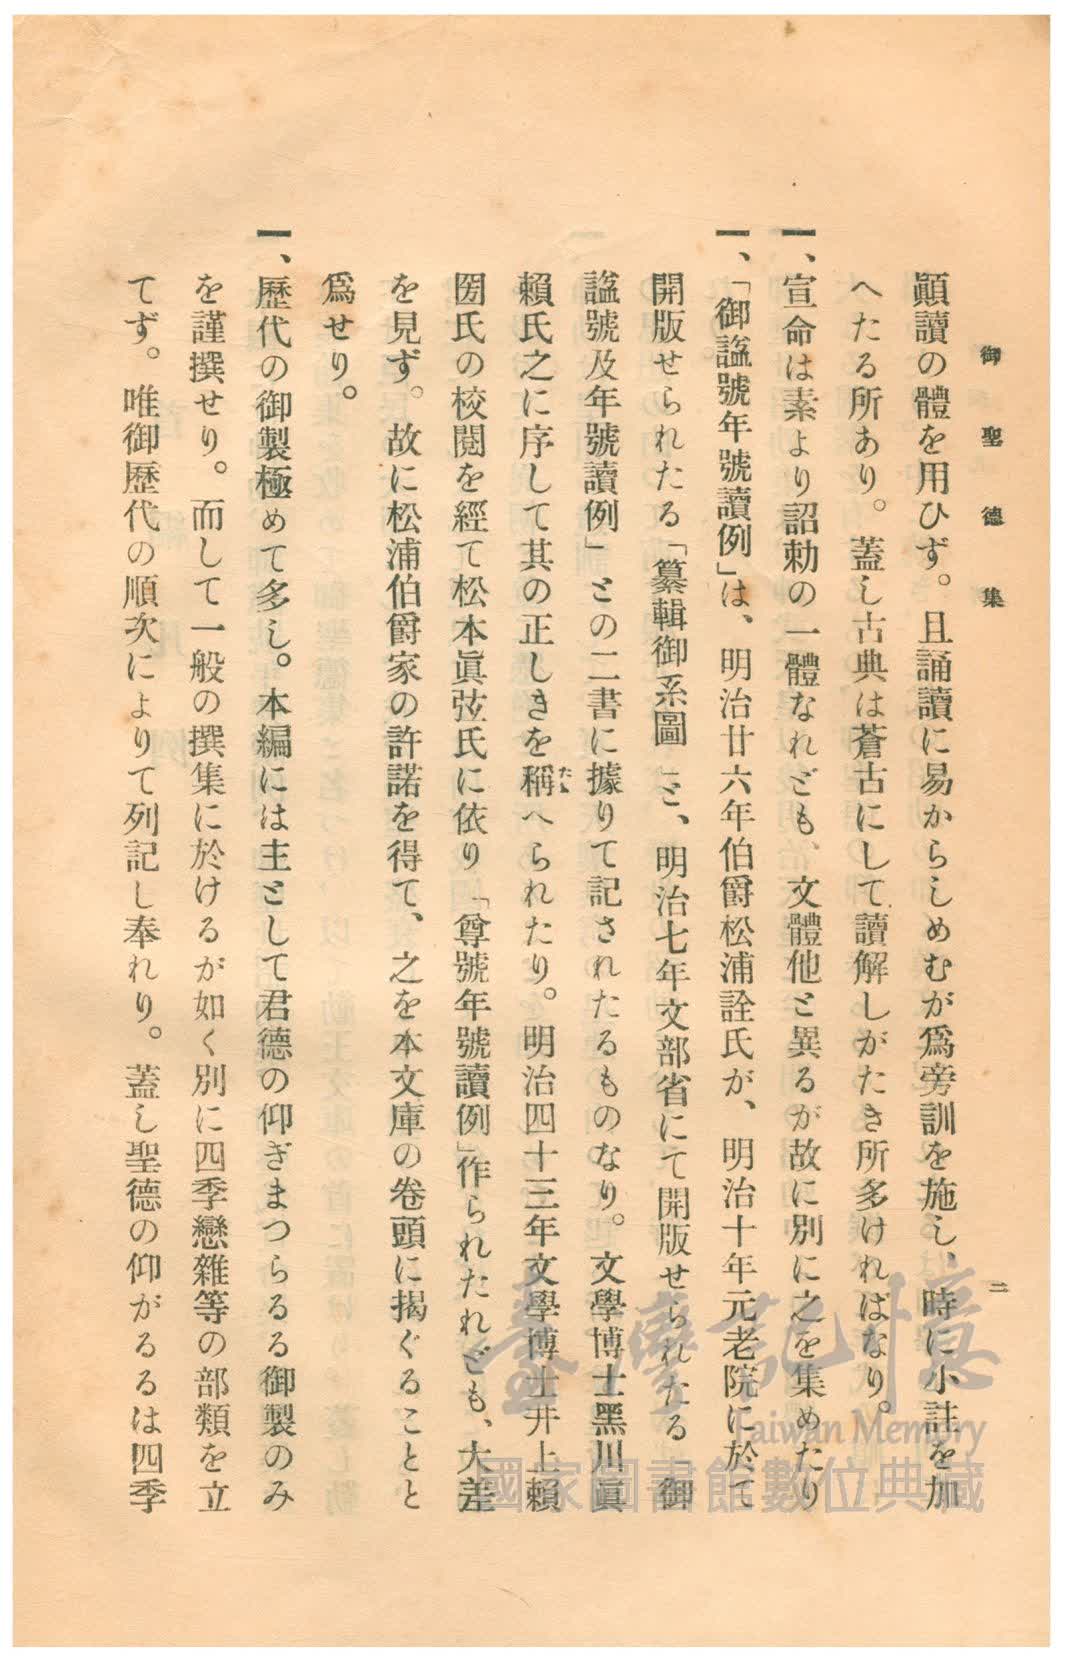 御聖德集
二
顚讀の體を用ひず。且誦讀に易からしめむが爲旁訓を施し、時に小註を加
へたる所あり。蓋し古典は蒼古にして讀解しがたき所多ければなり。
一、宣命は素より詔勅の一體なれども、文體他と異るが故に別に之を集めたり
一、「御諡號年號讀例」は、明治廿六年伯爵松浦詮氏が、明治十年元老院に於て
開版せられたる「纂輯御系圖」と、明治七年文部省にて開版せられたる「御
諡號及年號讀例」との二書に據りて記されたるものなり。文學博士黑川眞
賴氏之に序して其の正しきを稱へられたり。明治四十三年文學博士井上賴
圀氏の校閱を經て松本眞弦氏に依り「尊號年號讀例」作られたれども、大差
を見ず。故に松浦伯爵家の許諾を得て、之を本文庫の卷頭に揭ぐることと
爲せり。
一、歷代の御製極めて多し。本編には主として君德の仰ぎまつらるる御製のみ
を謹撰せり。而して一般の撰集に於けるが如く別に四季戀雜等の部類を立
てず。唯御歷代の順次によりて列記し奉れり。蓋し聖德の仰がるるは四季
臺灣記憶
Taiwan Memory
國家圖書館數位典藏